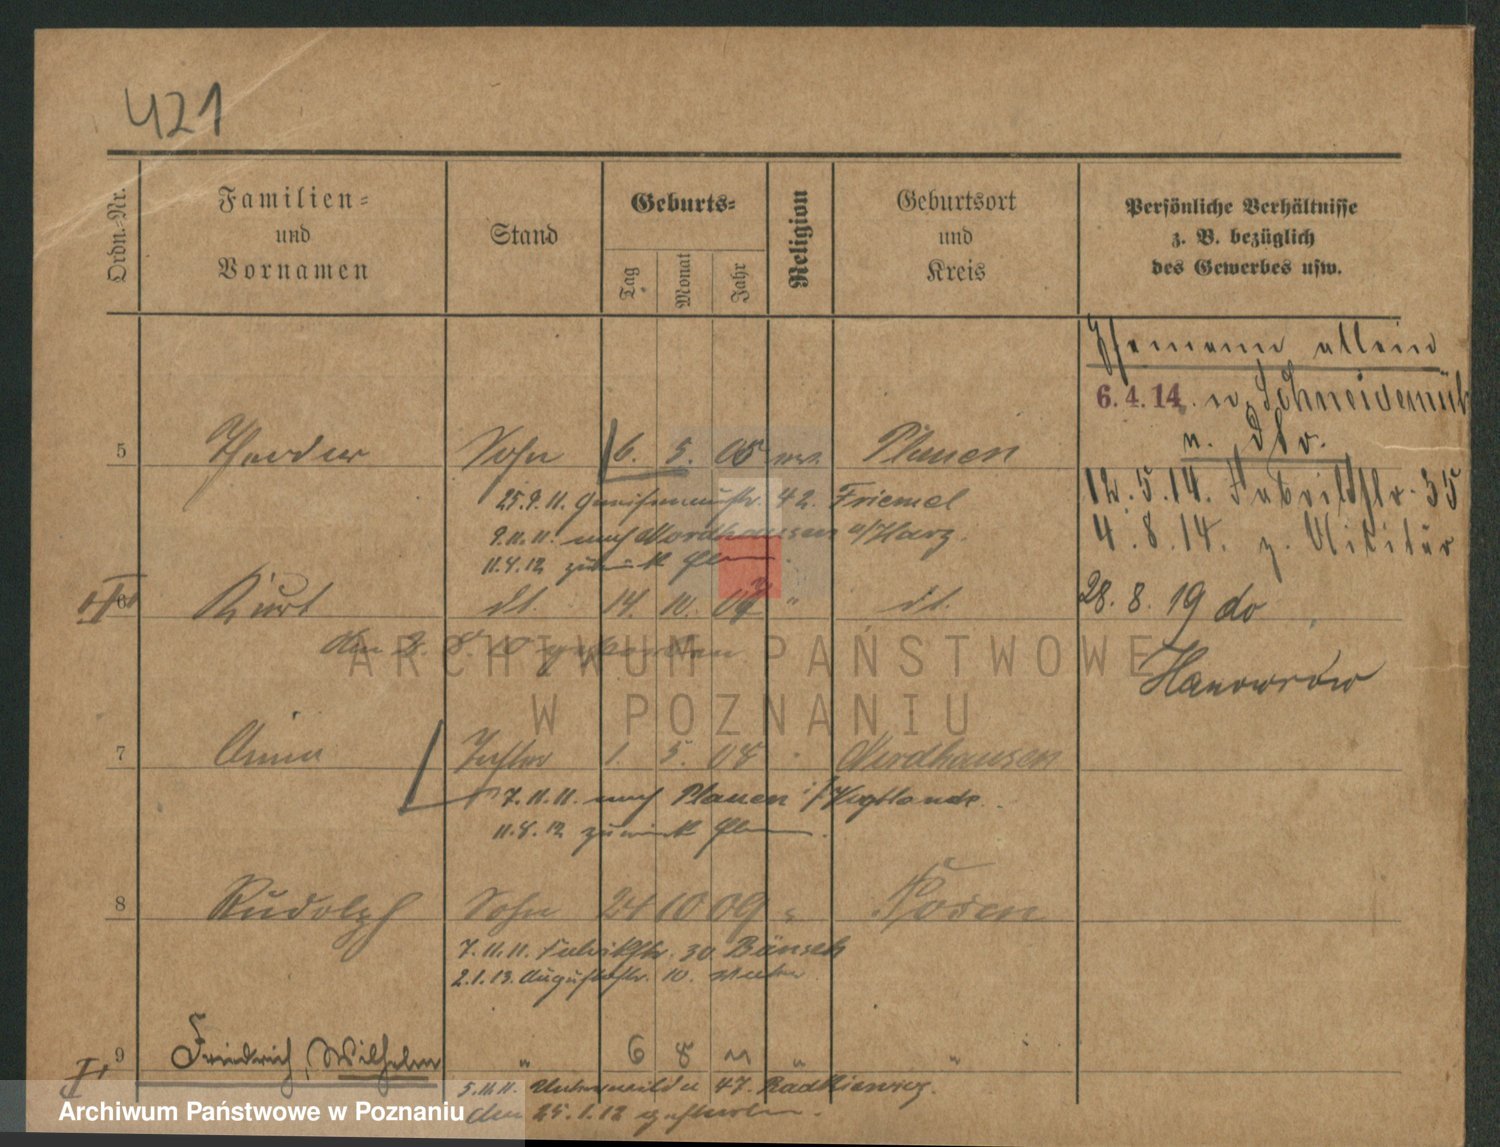 421
Ordn.-Nr.
Familien-
und
Vornamen
Stand
Geburts-
Tag
Monat
Jahr
Religion
Geburtsort
und
Kreis
Persönliche Verhältnisse
z. B. bezüglich
des Gewerbes usw.
Ehemann allein
6.4.14. n. Schneidemühl
5 Theodor Sohn 6. 5. 05 Plauen
12.5.14. Fabrikstr. 35
25.9.11. Gneisenaustr. 42. Friemel
9.11.11. nach Nordhausen a/Harz.
4.8.14. z. Militär
11.4.12 zurück
6 Kurt dt. 14. 10. 07 " dt.
28.8.19 do
den 2.8.10 gestorben
Hanowrów
7 Anna Tochter 1. 5. 08 " Nordhausen
7.11.11. nach Plauen i/Vogtlande.
11.8.12 zurück
8 Rudolph Sohn 24 10 09 " Posen
7.11.11. Fabrikstr. 30 Bänsch
2.1.13. Augustastr. 10.
9 Friedrich, Wilhelm " 6 8 11 " "
5.11.11. 47. Radkiewicz.
den 25.1.12 gestorben.
ARCHIWUM PAŃSTWOWE
W POZNANIU
Archiwum Państwowe w Poznaniu